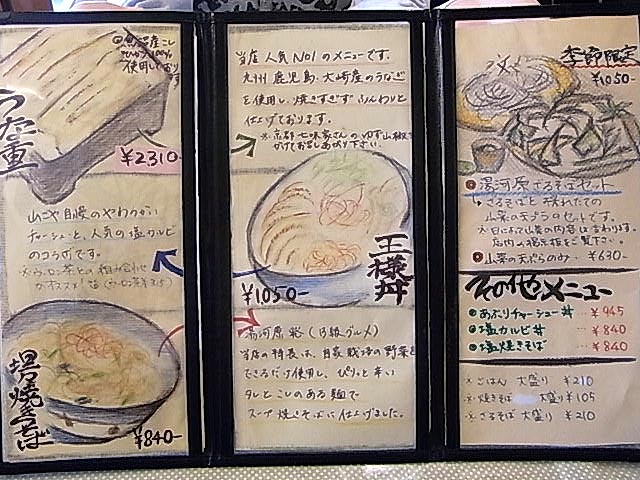 うな重
※魚沼産こし
ひかり100%
使用しております
¥2310-
山ごや自慢のやわらかい
チャーシューと、人気の塩カルビ
のコラボです。
※ウーロン茶との相み合わせ
がオススメ!
担々焼きそば
¥840-
当店人気NO1のメニューです。
九州 鹿児島・大崎産のうなぎ
を使用し、焼きすぎず ふんわりと
仕上げております。
※京都 七味家さんの ゆず山椒を
かけてお召しあがり下さい。
王様丼
¥1050-
湯河原発 (B級グルメ)
当店の特長は、自家栽培の野菜を
できるだけ使用し、ぴりっと辛い
タレと こしのある麺で
スープ焼きそばに仕上げました。
季節限定
¥1050-
湯河原ざるそばセット
ざるそばと 採れたての
山菜の天ぷらのセットです。
※日により山菜の内容は変わります。
店内の掲示板をご覧下さい。
山菜の天ぷらのみ ¥630-
その他メニュー
あぶりチャーシュー丼 ¥945
塩カルビ丼 ¥840
塩焼きそば ¥840
※ごはん 大盛り ¥210
※焼きそば 大盛り ¥105
※ざるそば 大盛り ¥210